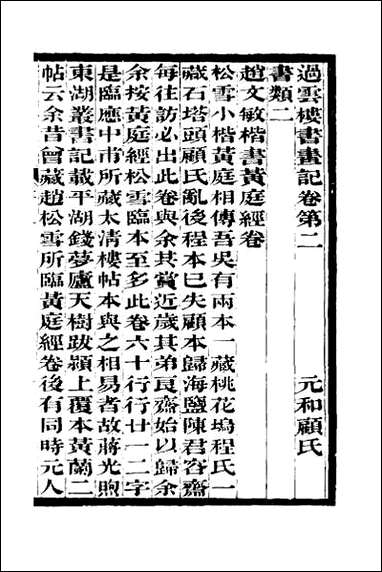 過雲樓書畫記卷第二 元和顧氏
書類二
趙文敏楷書黃庭經卷
松雪小楷黃庭相傳吾吳有兩本一藏桃花塢程氏一
藏石塔頭顧氏亂後程本已失顧本歸海鹽陳君容齋
每往訪必出此卷與余其賞近歲其弟良齋始以歸余
余按黃庭經松雪臨本至多此卷六十行行廿一二字
是臨應中甫所藏太清樓帖本與之相易者故蔣光煦
東湖叢書記載平湖錢夢廬天樹跋潁上覆本黃蘭二
帖云余昔曾藏趙松雪所臨黃庭經卷後有同時元人